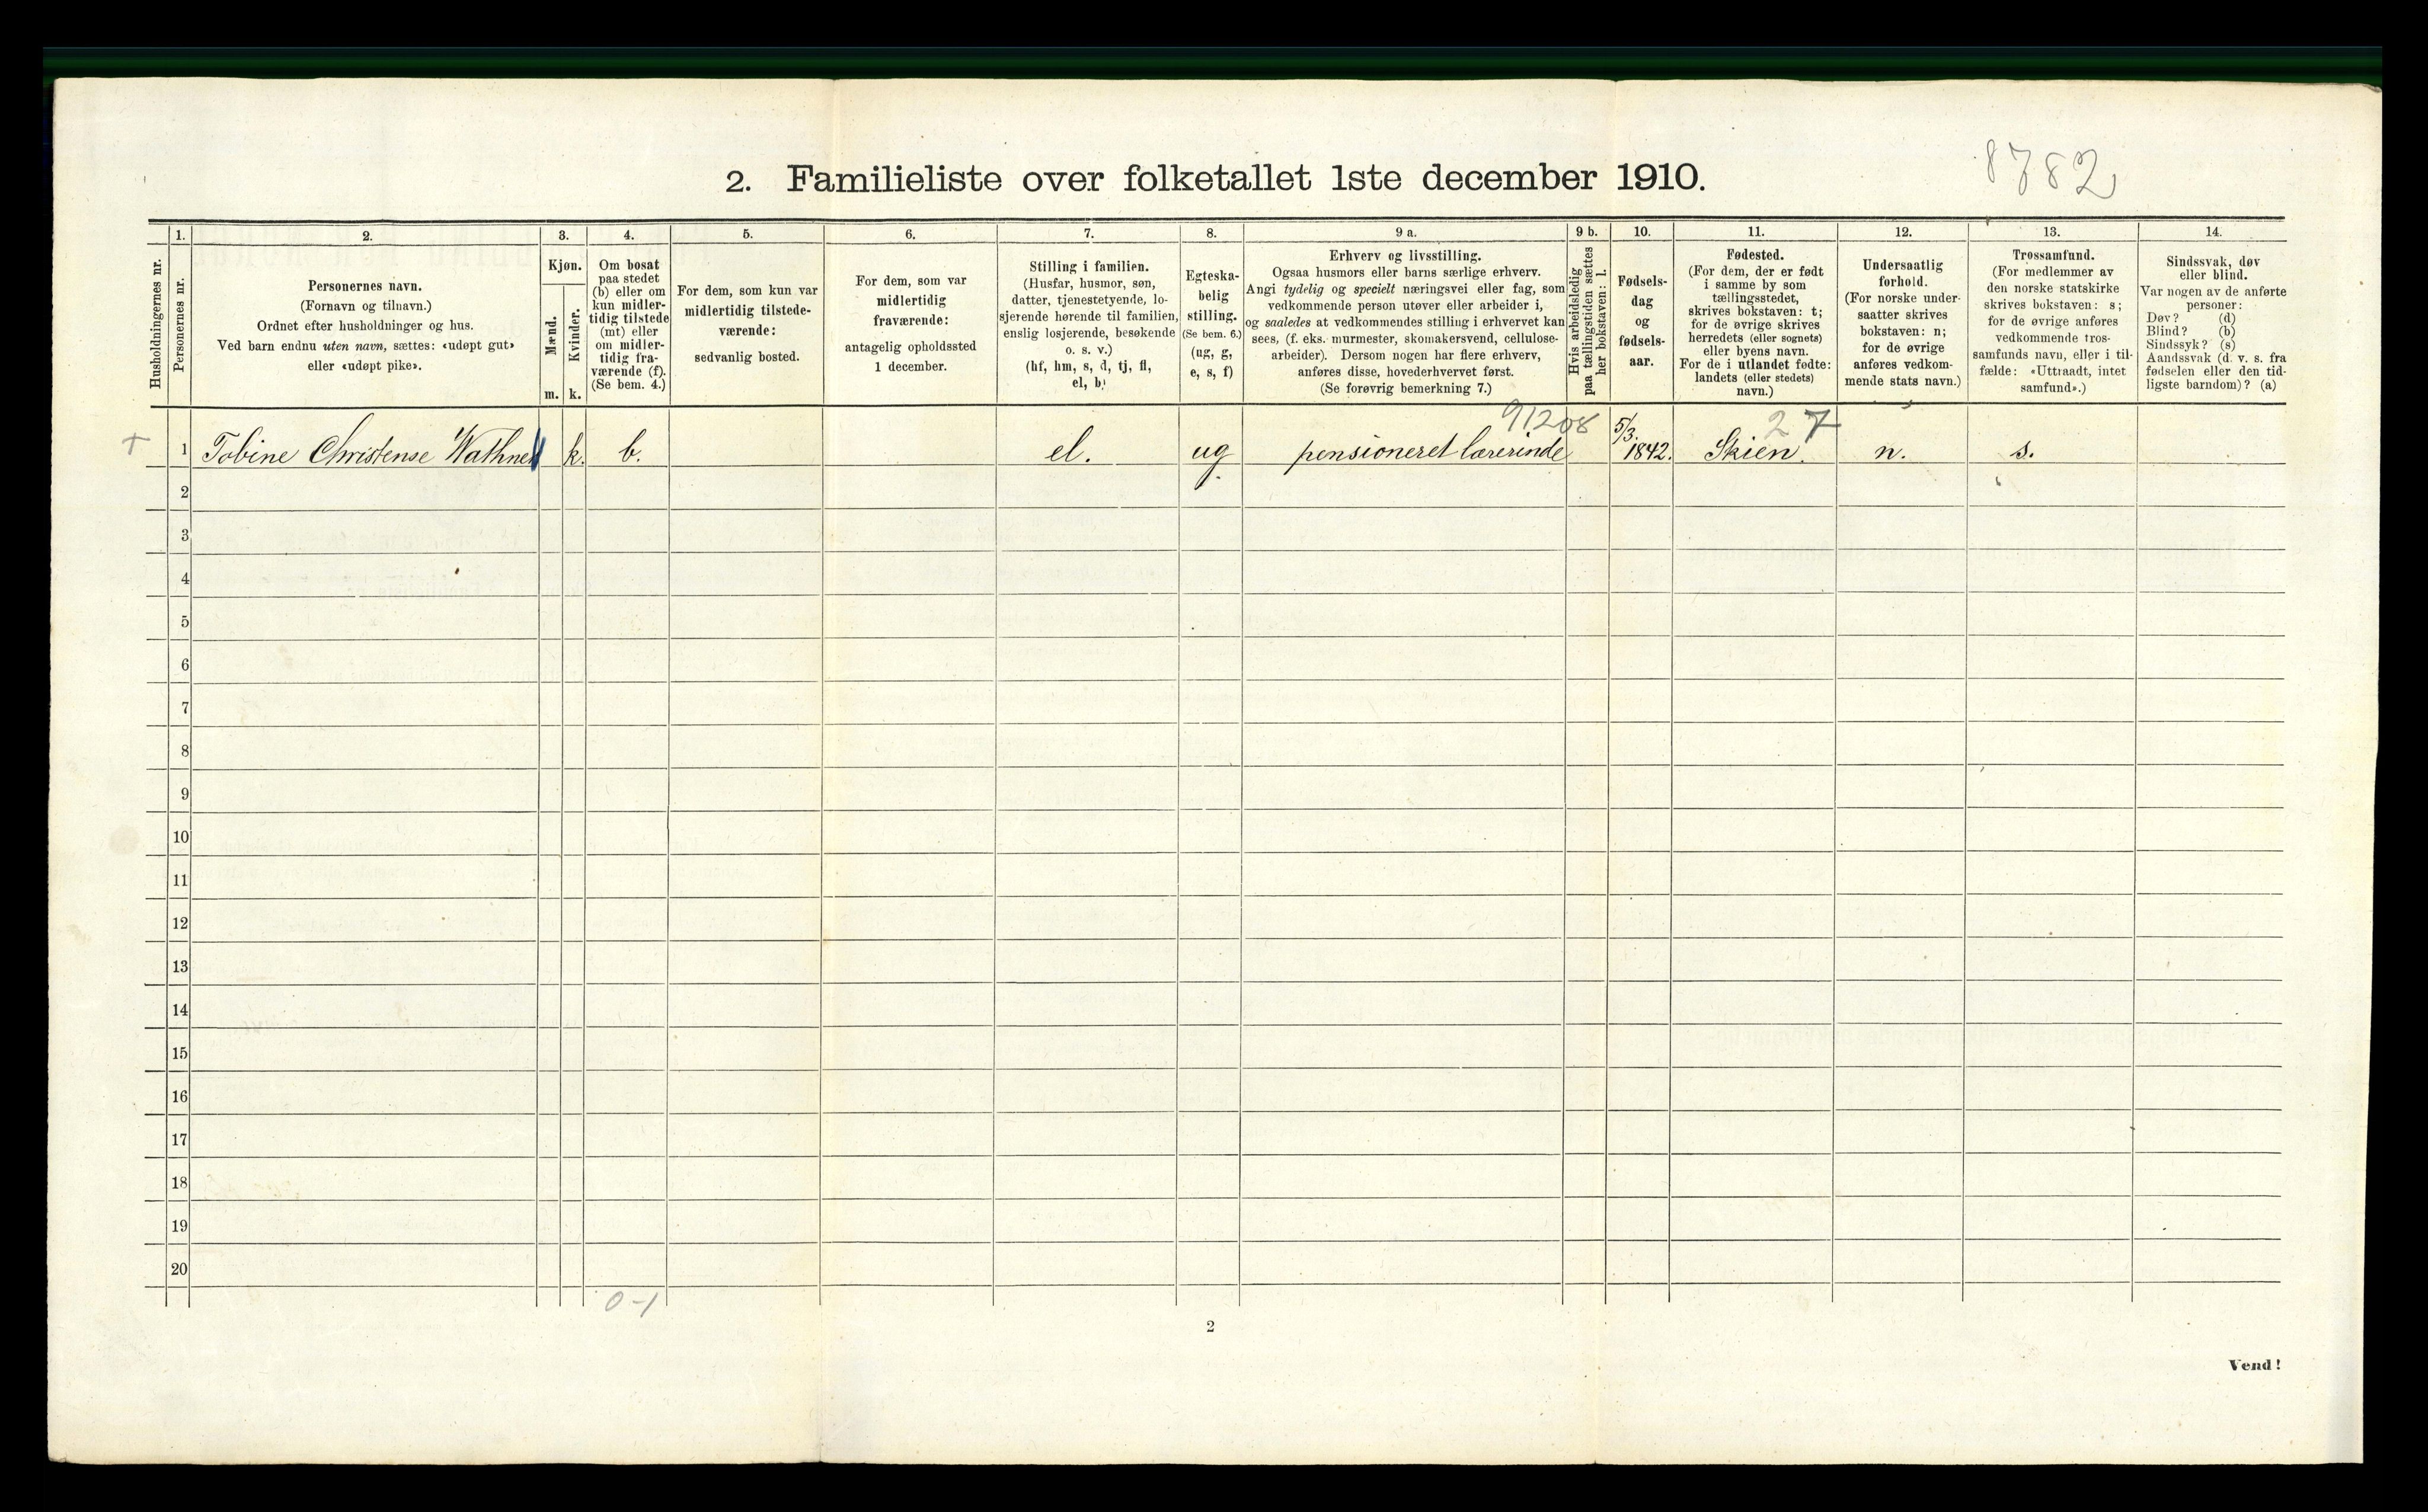 8782
2. Familieliste over folketallet 1ste december 1910.
Husholdningernes nr.
1.
Personernes nr.
2.
Personernes navn.
(Fornavn og tilnavn.)
Ordnet efter husholdninger og hus.
Ved barn endnu uten navn, sættes: «udøpt gut»
eller «udøpt pike».
3.
Kjøn.
Mænd.
Kvinder.
m. k.
4.
Om bosat
paa stedet
(b) eller om
kun midler-
tidig tilstede
(mt) eller
om midler-
tidig fra-
værende (f).
(Se bem. 4.)
5.
For dem, som kun var
midlertidig tilstede-
værende:
sedvanlig bosted.
6.
For dem, som var
midlertidig
fraværende:
antagelig opholdssted
1 december.
7.
Stilling i familien.
(Husfar, husmor, søn,
datter, tjenestetyende, lo-
sjerende hørende til familien,
enslig losjerende, besøkende
o. s. v.)
(hf, hm, s, d, tj, fl,
el, b)
8.
Egteska-
belig
stilling.
(Se bem. 6.)
(ug, g,
e, s, f)
9 a.
Erhverv og livsstilling.
Ogsaa husmors eller barns særlige erhverv.
Angi tydelig og specielt næringsvei eller fag, som
vedkommende person utøver eller arbeider i,
og saaledes at vedkommendes stilling i erhvervet kan
sees, (f. eks. murmester, skomakersvend, cellulose-
arbeider). Dersom nogen har flere erhverv,
anføres disse, hovederhvervet først.
(Se forøvrig bemerkning 7.)
9 b.
Hvis arbeidsledig
paa tællingstiden sættes
her bokstaven: l.
10.
Fødsels-
dag
og
fødsels-
aar.
11.
Fødested.
(For dem, der er født
i samme by som
tællingsstedet,
skrives bokstaven: t;
for de øvrige skrives
herredets (eller sognets)
eller byens navn.
For de i utlandet fødte:
landets (eller stedets)
navn.)
12.
Undersaatlig
forhold.
(For norske under-
saatter skrives
bokstaven: n;
for de øvrige
anføres vedkom-
mende stats navn.)
13.
Trossamfund.
(For medlemmer av
den norske statskirke
skrives bokstaven: s;
for de øvrige anføres
vedkommende tros-
samfunds navn, eller i til-
fælde: «Uttraadt, intet
samfund».)
14.
Sindssvak, døv
eller blind.
Var nogen av de anførte
personer:
Døv? (d)
Blind? (b)
Sindssyk? (s)
Aandssvak (d. v. s. fra
fødselen eller den tid-
ligste barndom)? (a)
91208 27
+ 1 Tobine Christense Wathne k. b. el. ug. pensioneret lærerinde 5/3. 1842. Skien. n. s.
2
3
4
5
6
7
8
9
10
11
12
13
14
15
16
17
18
19
20
0-1
2
Vend!